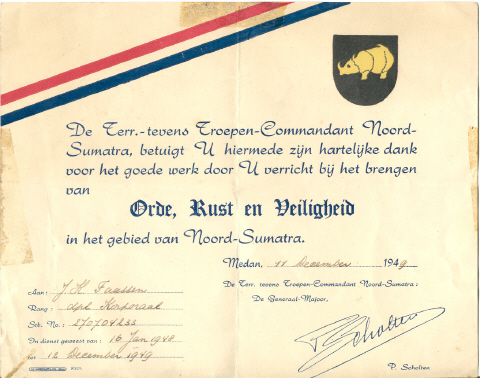 De Terr.-tevens Troepen-Commandant Noord-
Sumatra, betuigt U hiermede zijn hartelijke dank
voor het goede werk door U verricht bij het brengen
van
Orde, Rust en Veiligheid
in het gebied van Noord-Sumatra.
Medan, 11 December 1949
De Terr. tevens Troepen-Commandant Noord-Sumatra:
De Generaal-Majoor,
Aan: J H Faassen
Rang: dpl Korporaal
Stb. No.: 270704233
In dienst geweest van: 16 Jan 1948
tot 12 December 1949
P Scholten
P. Scholten